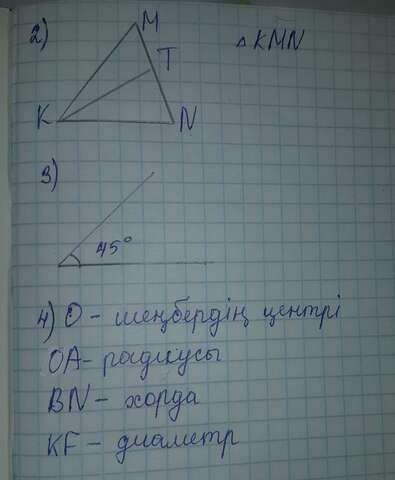 2)
M
T
K
N
△ KMN
3)
45°
4) O - шеңбердің центрі
OA - радиусы
BN - хорда
KF - диаметр